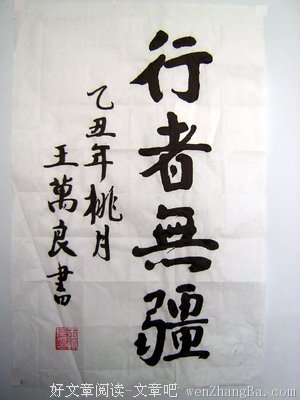 行者無疆
乙丑年桃月
王萬良書
好文章阅读-文章吧 wenZhangBa.com